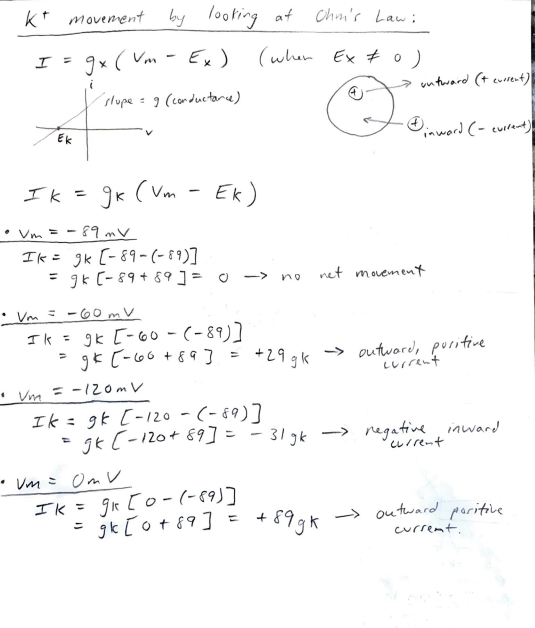 K+ movement by looking at Ohm's Law:
I = gx (Vm - Ex) (when Ex ≠ 0)
i
slope = g (conductance)
EK
v
+
outward (+ current)
+
inward (- current)
IK = gK (Vm - EK)
• Vm = -89 mV
IK = gK [-89-(-89)]
= gK [-89 + 89] = 0 → no net movement
• Vm = -60 mV
IK = gK [-60 - (-89)]
= gK [-60 + 89] = +29 gK → outward, positive
current
• Vm = -120 mV
IK = gK [-120 - (-89)]
= gK [-120 + 89] = -31 gK → negative inward
current
• Vm = 0 mV
IK = gK [0 - (-89)]
= gK [0 + 89] = +89 gK → outward positive
current.